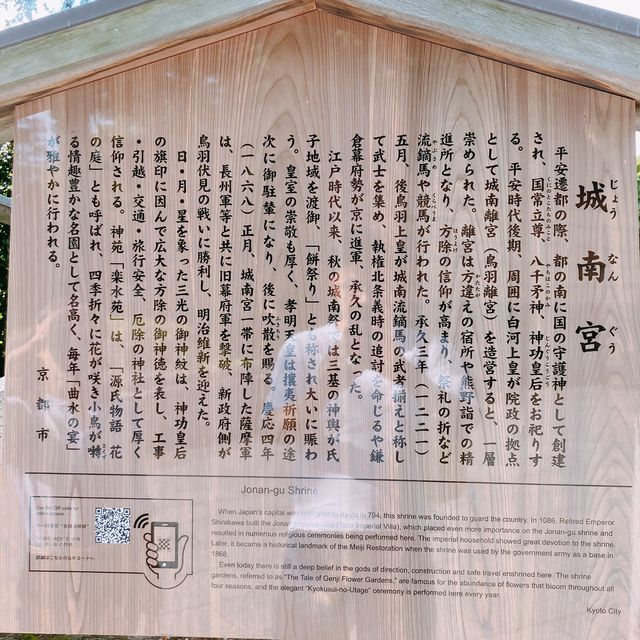 城南宮
じょうなんぐう
平安遷都の際、都の南に国の守護神として創建
され、国常立尊、八千矛神、神功皇后をお祀りす
る。平安時代後期、周囲に白河上皇が院政の拠点
として城南離宮(鳥羽離宮)を造営すると、一層
崇められた。離宮は方違えの宿所や熊野詣での精
進所となり、方除の信仰が高まり、祭礼の折など
流鏑馬や競馬が行われた。承久三年(一二二一)
五月、後鳥羽上皇が城南流鏑馬の武者揃えと称し
て武士を集め、執権北条義時の追討を命じるや鎌
倉幕府勢が京に進軍、承久の乱となった。
江戸時代以来、秋の城南祭では三基の神輿が氏
子地域を渡御、「餅祭り」とも称され大いに賑わ
う。皇室の崇敬も厚く、孝明天皇は攘夷祈願の途
次に御駐輦になり、後に吹散を賜る。慶応四年
(一八六八)正月、城南宮一帯に布陣した薩摩軍
は、長州軍等と共に旧幕府軍を撃破、新政府側が
鳥羽伏見の戦いに勝利し、明治維新を迎えた。
日・月・星を象った三光の御神紋は、神功皇后
の旗印に因んで広大な方除の御神徳を表し、工事
・引越・交通・旅行安全、厄除の神社として厚く
信仰される。神苑「楽水苑」は、「源氏物語 花
の庭」とも呼ばれ、四季折々に花が咲き小鳥が囀
る情趣豊かな名園として名高く、毎年「曲水の宴」
が雅やかに行われる。
京都市
Jonan-gu Shrine
When Japan's capital was relocated to Kyoto in 794, this shrine was founded to guard the country. In 1086, Retired Emperor
Shirakawa built the Jonan Imperial Villa (Toba Imperial Villa), which placed even more importance on the Jonan-gu shrine and
resulted in numerous religious ceremonies being performed here. The imperial household showed great devotion to the shrine.
Later, it became a historical landmark of the Meiji Restoration when the shrine was used by the government army as a base in
1868.
Even today there is still a deep belief in the gods of direction, construction and safe travel enshrined here. The shrine
gardens, referred to as "The Tale of Genji Flower Gardens," are famous for the abundance of flowers that bloom throughout all
four seasons, and the elegant "Kyokusui-no-Utage" ceremony is performed here every year.
Kyoto City
Use this QR code for
詳細はこちらのQRコードへ